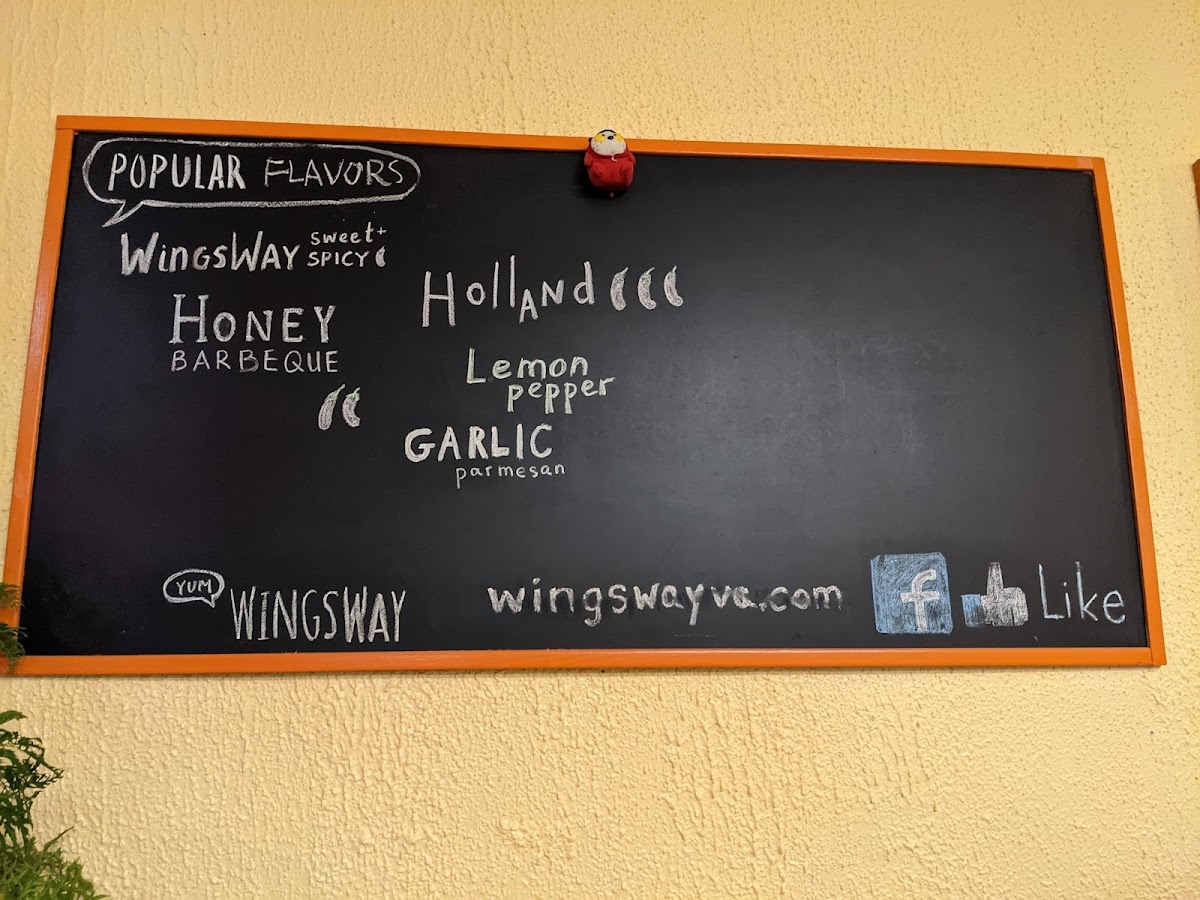 POPULAR FLAVORS
WINGSWAY sweet+
SPICY
HONEY
BARBEQUE
HollAnd
Lemon
pepper
GARLIC
parmesan
YUM
WINGSWAY
wingswayva.com
f Like